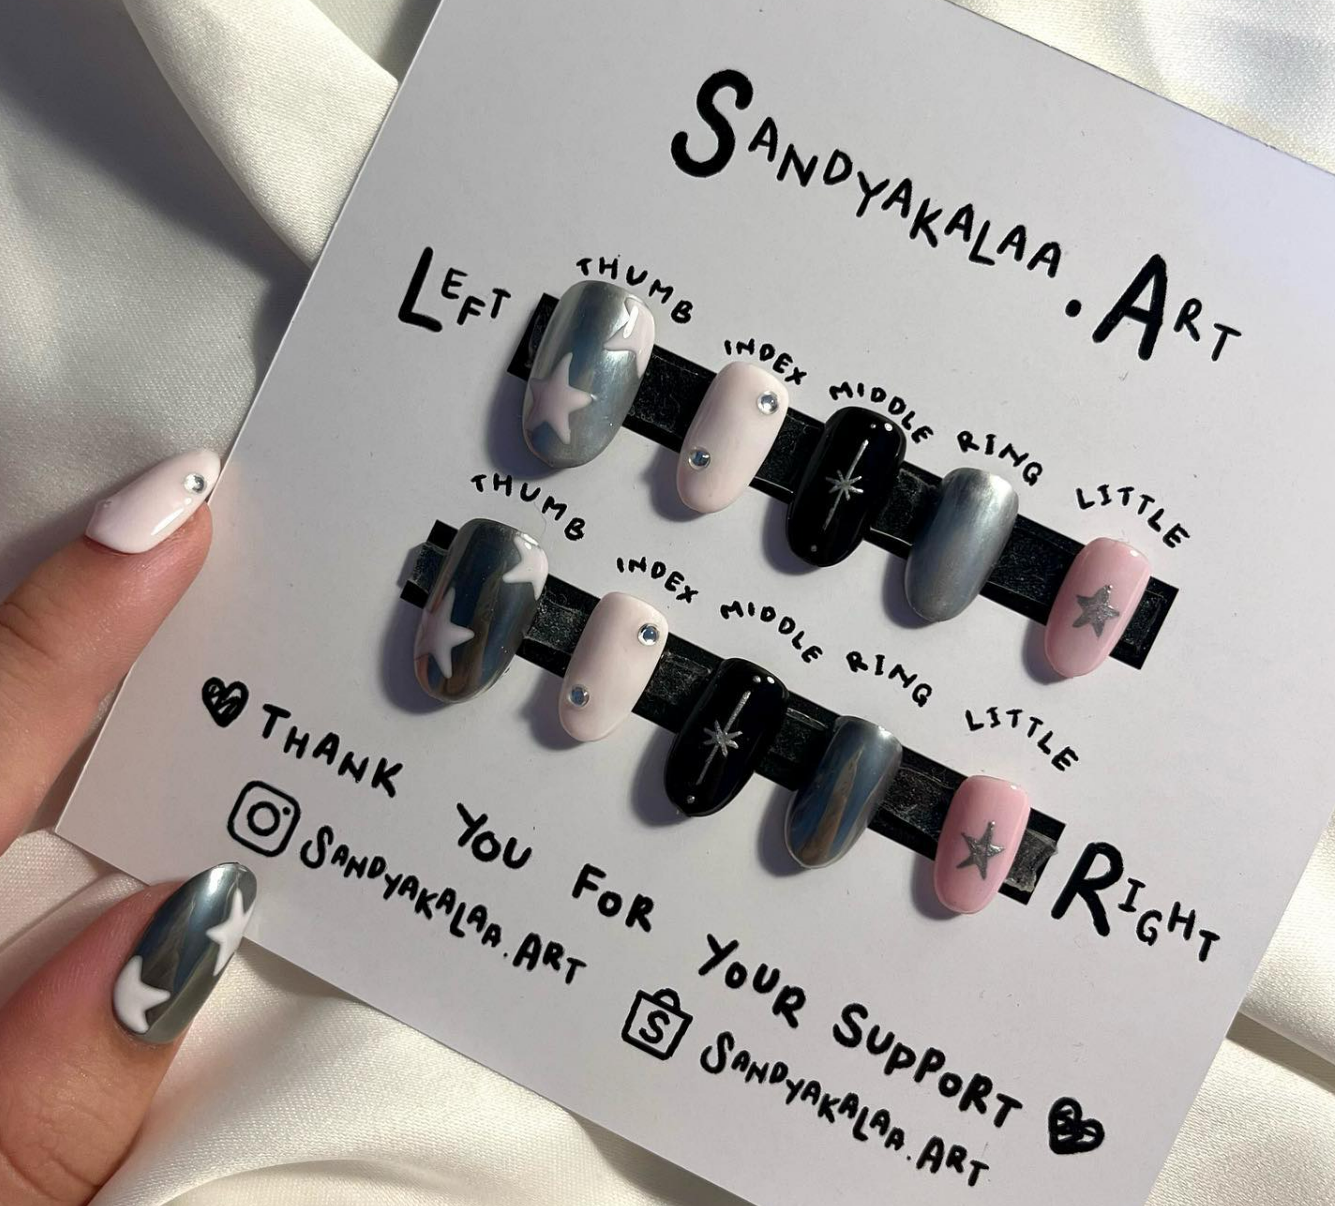 SANDYAKALAA.ART
LEFT
THUMB INDEX MIDDLE RING LITTLE
THUMB INDEX MIDDLE RING LITTLE
RIGHT
THANK YOU FOR YOUR SUPPORT
SANDYAKALAA.ART
S SANDYAKALAA.ART